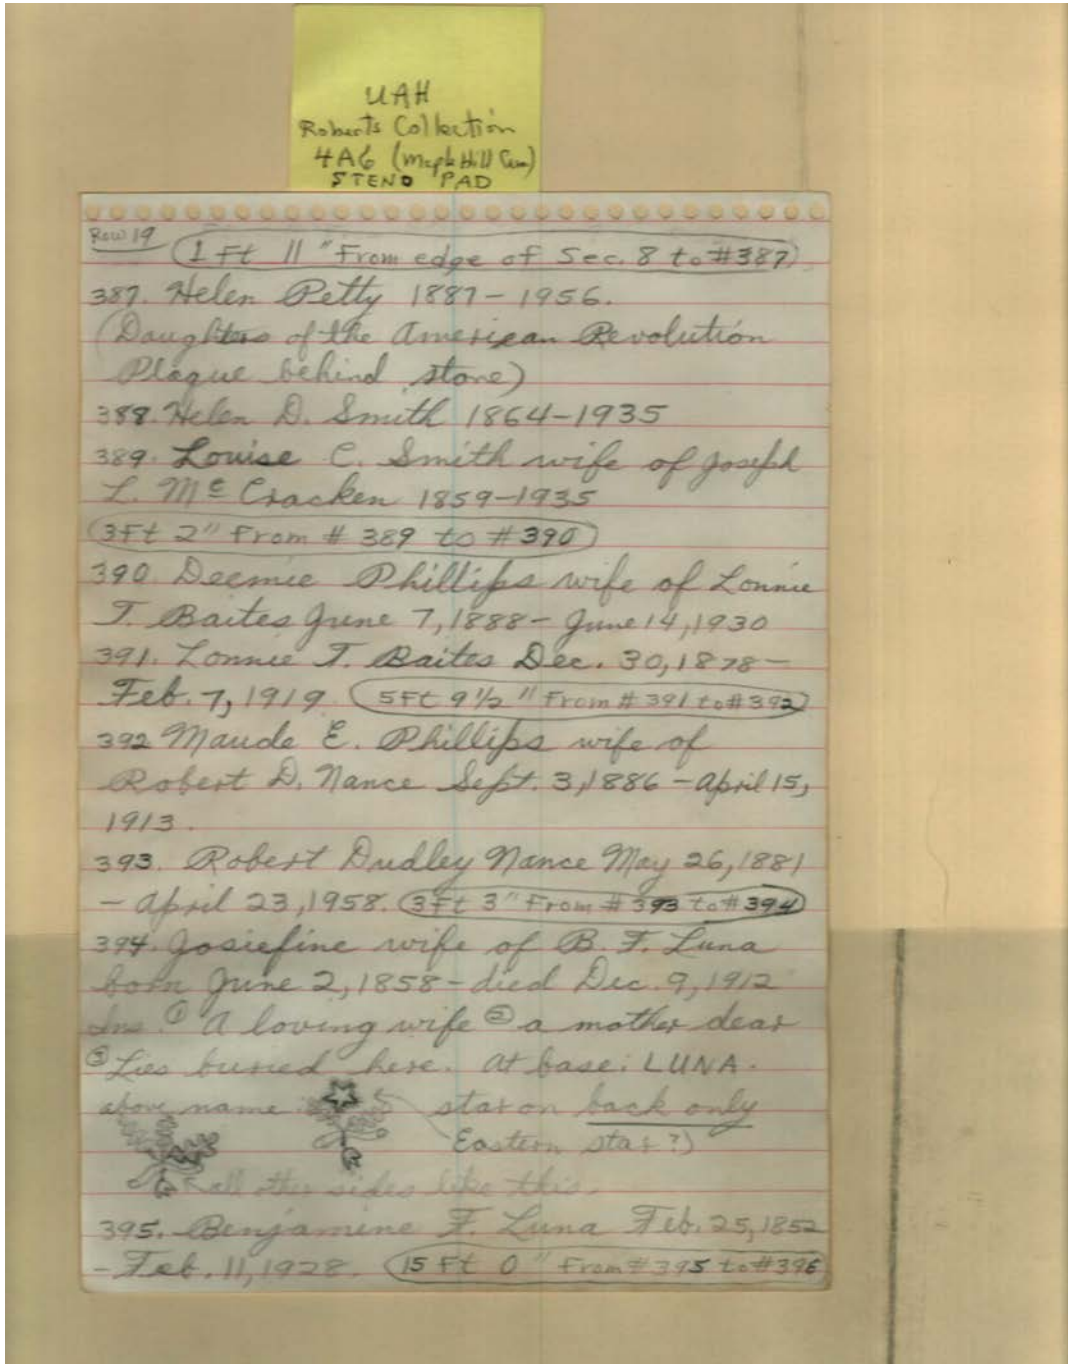 UAH
Roberts Collection
4A6 (Maple Hill Cem)
STENO PAD
Row 19
1 Ft 11" From edge of Sec. 8 to #387
387. Helen Petty 1887-1956.
(Daughters of the American Revolution
Plaque behind stone)
388. Helen D. Smith 1864-1935
389. Louise C. Smith wife of Joseph
L. McCracken 1859-1935
3Ft 2" From #389 to #390
390. Deemie Phillips wife of Lonnie
T. Baites June 7, 1888- June 14, 1930
391. Lonnie T. Baites Dec. 30, 1878-
Feb. 7, 1919. 5Ft 9 1/2" From #391 to #392
392 Maude E. Phillips wife of
Robert D. Nance Sept. 3, 1886 - April 15,
1913.
393. Robert Dudley Nance May 26, 1881
- April 23, 1958. 3Ft 3" From #393 to #394
394. Josiefine wife of B. F. Luna
born June 2, 1858- died Dec. 9, 1912
Ins. ① A loving wife ② a mother dear
③ Lies buried here. At base: LUNA.
above name star on back only
Eastern star?)
all other sides like this.
395. Benjamine F. Luna Feb. 25, 1852
- Feb. 11, 1928. 15 Ft 0" From #395 to #396